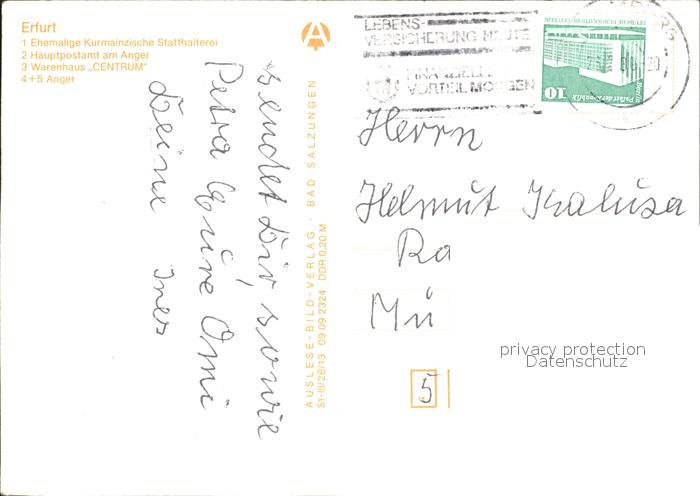 Erfurt
1 Ehemalige Kurmainzische Statthalterei
2 Hauptpostamt am Anger
3 Warenhaus „CENTRUM"
4+5 Anger
sendet Dir, sowie
Petra Eure Omi
Deine Ines
AUSLESE-BILD-VERLAG · BAD SALZUNGEN
S1-III/26/13 09 09 2324 DDR 0,20 M
LEBENS-
VERSICHERUNG HEUTE
FINANZIELLER
VORTEIL MORGEN
10
Herrn
Helmut Kalusa
Ra
Mü
5
privacy protection
Datenschutz